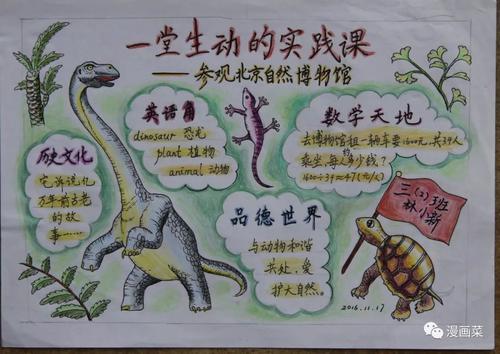 一堂生动的实践课
——参观北京自然博物馆
英语角
dinosaur 恐龙
plant 植物
animal 动物
数学天地
去博物馆租一辆车要1600元,共39人
乘坐,每人多少钱?
1600÷39≈47(元/人)
历史文化
它诉说几
万年前古老
的故
事……
品德世界
与动物和谐
共处,爱
护大自然。
三(2)班
林小新
2016.11.17
漫画菜